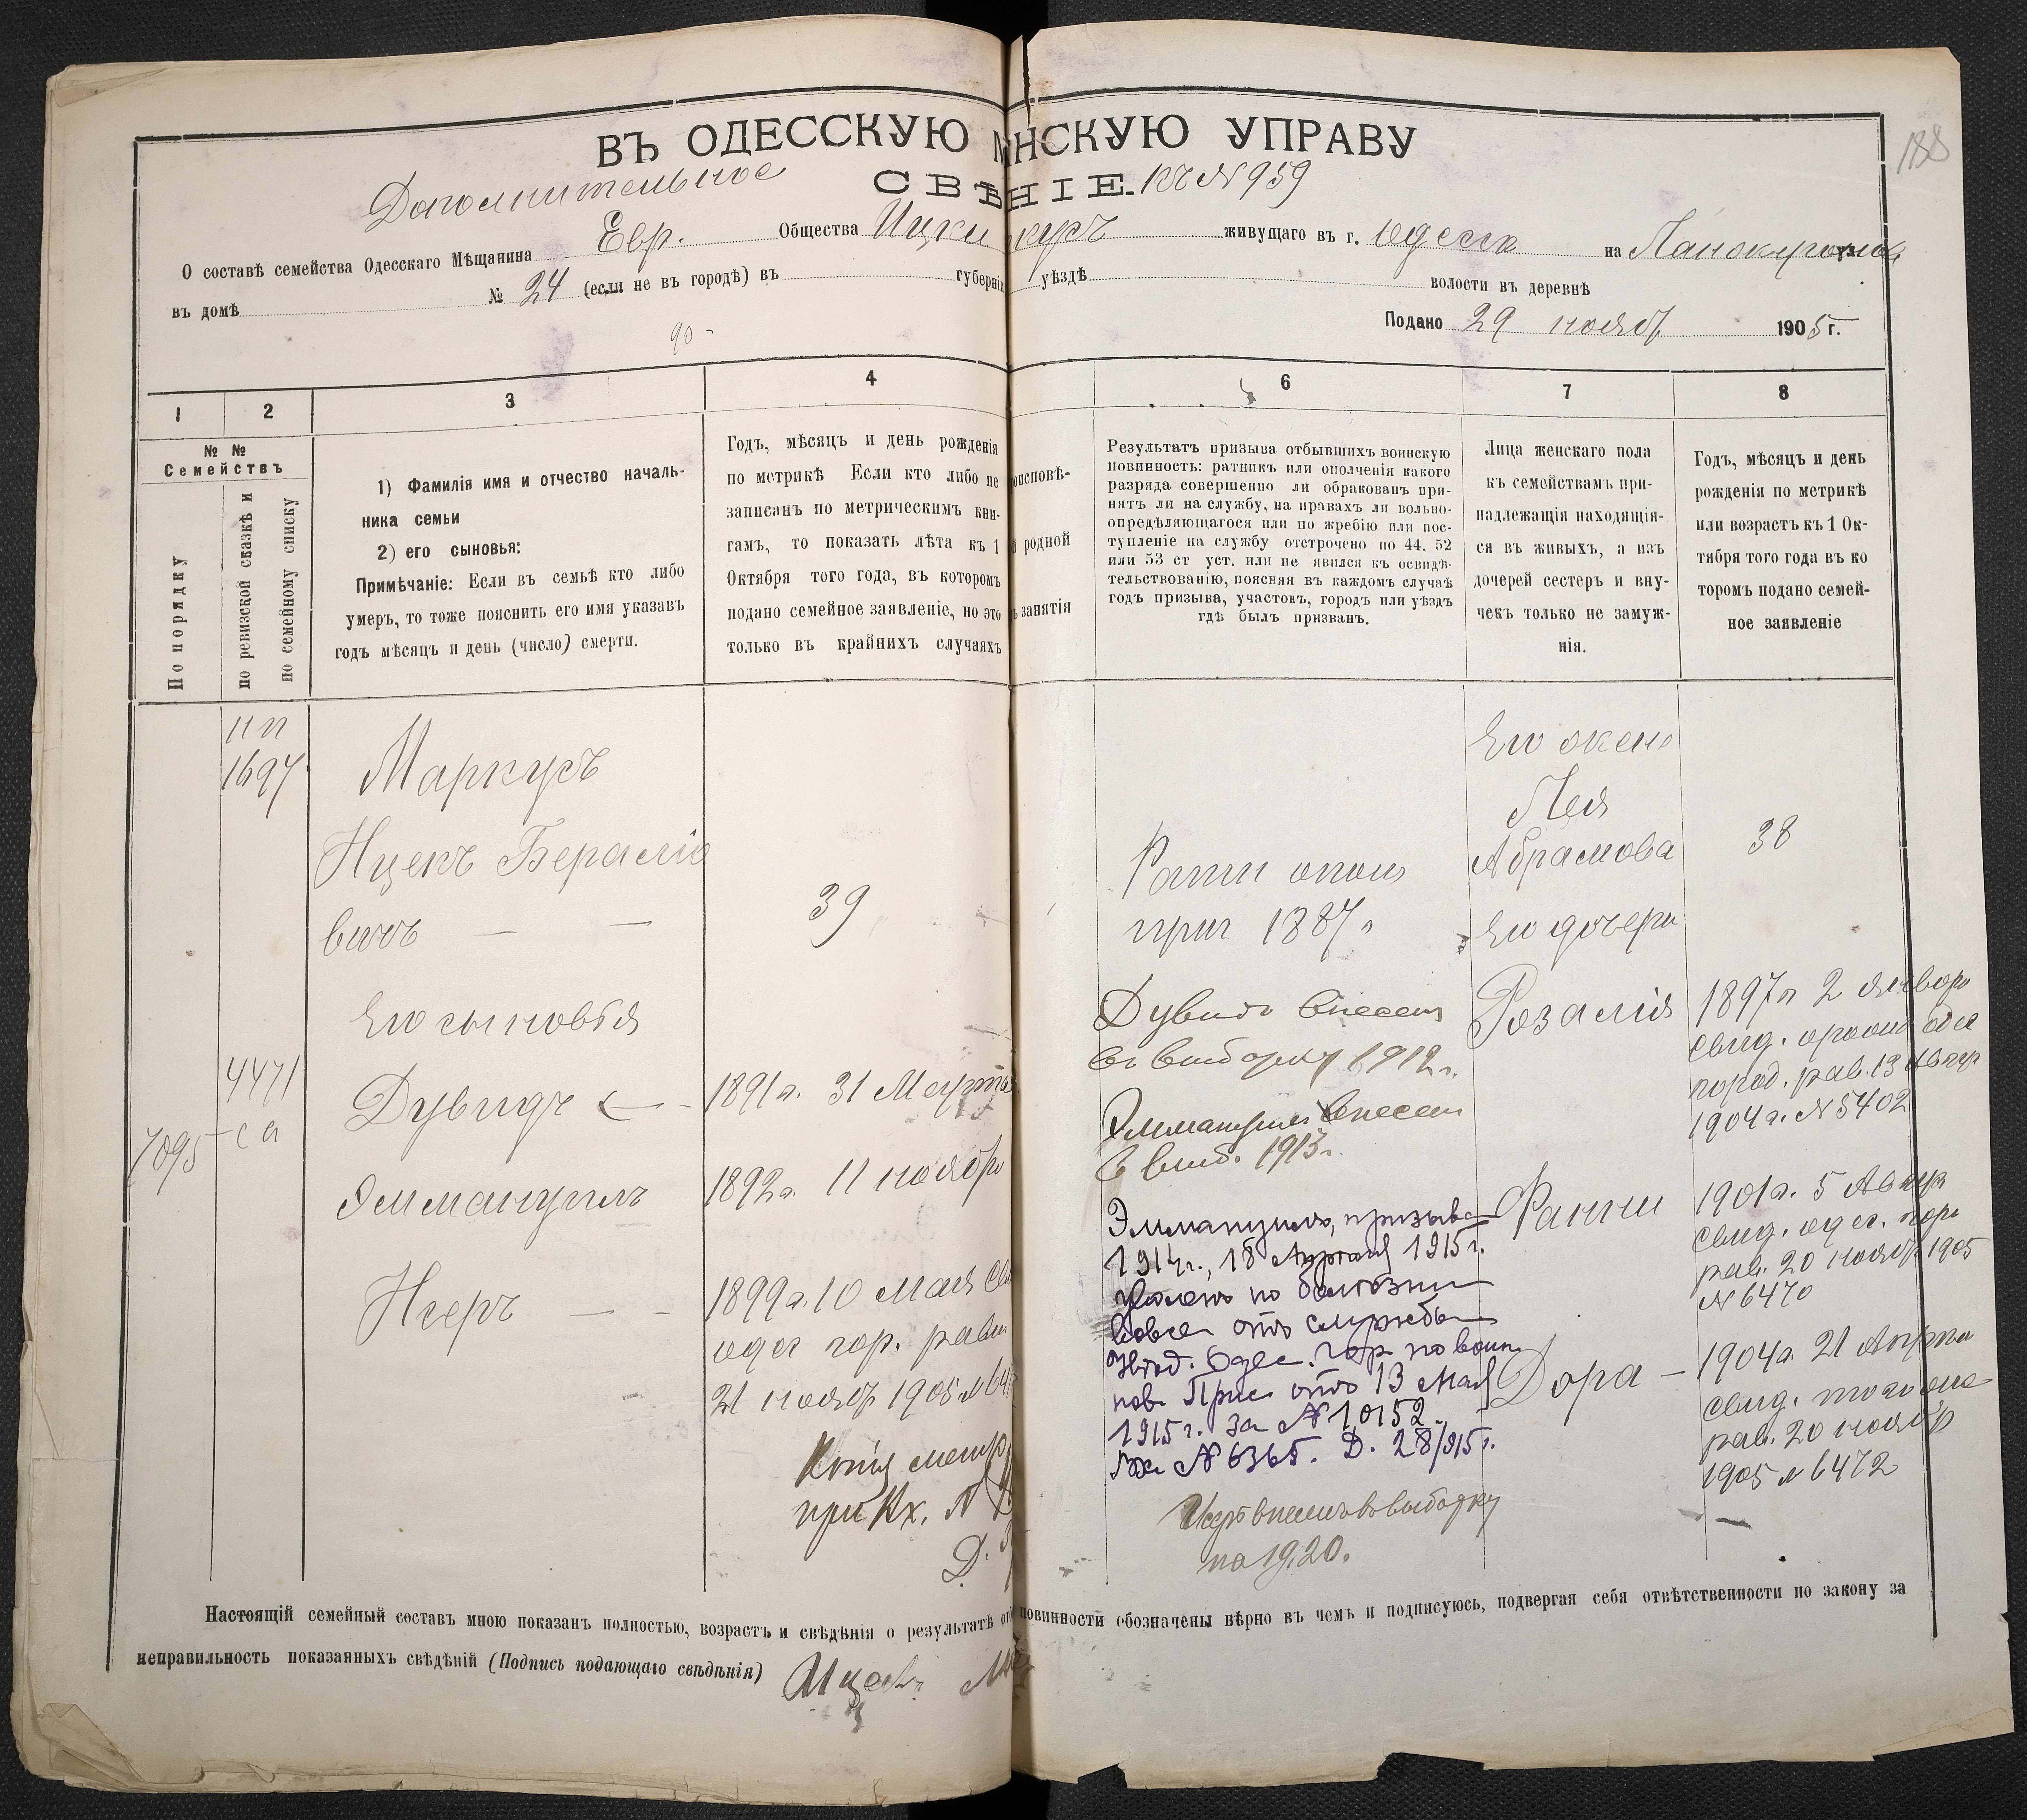 188
ВЪ ОДЕССКУЮ МНСКУЮ УПРАВУ
Дополнительное СВѢНІЕ. къ № 959
О составѣ семейства Одесскаго Мѣщанина Евр. Общества Ицки живущаго въ г. Одесса на
въ домѣ № 24 (если не въ городѣ) въ губерніи уѣздѣ волости въ деревнѣ
Подано 29 нояб 1905 г.
90
1 2 3 4 6 7 8
№ №
Семействъ
По порядку
по ревизской сказкѣ и
по семейному списку
1) Фамилія имя и отчество началь-
ника семьи
2) его сыновья:
Примѣчаніе: Если въ семьѣ кто либо
умеръ, то тоже пояснить его имя указавъ
годъ мѣсяцъ и день (число) смерти.
Годъ, мѣсяцъ и день рожденія
по метрикѣ Если кто либо не
записанъ по метрическимъ кни-
гамъ, то показать лѣта къ 1
Октября того года, въ которомъ
подано семейное заявленіе, но это
только въ крайнихъ случаяхъ
оисповѣ-
й родной
ъ занятія
Результатъ призыва отбывшихъ воинскую
повинность: ратникъ или ополченія какого
разряда совершенно ли обракованъ при-
нятъ ли на службу, на правахъ ли вольно-
опредѣляющагося или по жребію или пос-
тупленіе на службу отстрочено по 44, 52
или 53 ст уст. или не явился къ освидѣ-
тельствованію, поясняя въ каждомъ случаѣ
годъ призыва, участовъ, городъ или уѣздъ
гдѣ былъ призванъ.
Лица женскаго пола
къ семействамъ при-
надлежащія находящія-
ся въ живыхъ, а изъ
дочерей сестеръ и вну-
чекъ только не замуж-
нія.
Годъ, мѣсяцъ и день
рожденія по метрикѣ
или возрастъ къ 1 Ок-
тября того года въ ко
торомъ подано семей-
ное заявленіе
1697
Маркусъ
Ицекъ Берасліо
вичъ
39
Его сыновья
4471
са
7095
Дувидъ
1891 г. 31 Марта
Эммануилъ
1892 г. 11 ноября
Исеръ
1899 г. 10 Мая
одес гор. равв
21 нояб 1905 №
Копія метр
при Вх. №
Д.
Ратн опол
приз 1887 г
Дувидъ внесен
въ выборку 1912 г.
Эммануил внесен
в выб. 1913 г.
Эммануилъ, призыва
1914 г., 18 1915 г.
уволенъ по болѣзни
вовсе отъ службы
Одес. Гор по воин.
пов. Прис отъ 13 Мая
1915 г. за № 10152
Вх № 6365. Д. 28/915 г.
Исеръ внесенъ въ выборку
на 1920.
Его жена
Лея
Абрамова
38
Его дочери
Розалія
1897 г 2 январ
свид. одес
город. рав. 13 Январ
1904 г. № 5402
Фанни
1901 г. 5 Января
свид. одес. гор
рав. 20 нояб 1905
№ 6470
Дора
1904 г. 21 Апрѣл
свид. того же
рав. 20 нояб
1905 № 6472
Настоящій семейный составъ мною показанъ полностью, возрастъ и свѣдѣнія о результатѣ от повинности обозначены вѣрно въ чемъ и подписуюсь, подвергая себя отвѣтственности по закону за
неправильность показанныхъ свѣдѣній (Подпись подающаго свѣдѣнія) Ицекъ